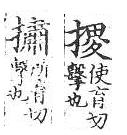 使育切
擊也
所育切
擊也